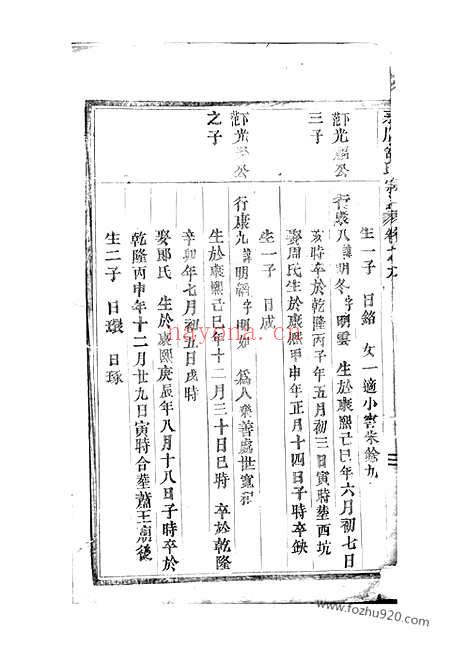 生一子 日銘 女一適小 九
下光 公
三子
行康八諱明冬字明雲 生於康熙己巳年六月初七日
亥時卒於乾隆丙子年五月初三日寅時塟西坑
娶周氏生於康熙甲申年正月十四日子時卒缺
生一子 日成
下光 公
之子
行康九諱明 字明 為人樂善處世寬和
生於康熙己巳年十二月三十日巳時 卒於乾隆
辛卯年七月初五日戌時
娶鄭氏 生於康熙庚辰年八月十八日子時卒於
乾隆丙申年十二月廿九日寅時合塟蕭王廟後
生二子 日環 日琢
nayona.cn
www.fozhu920.com